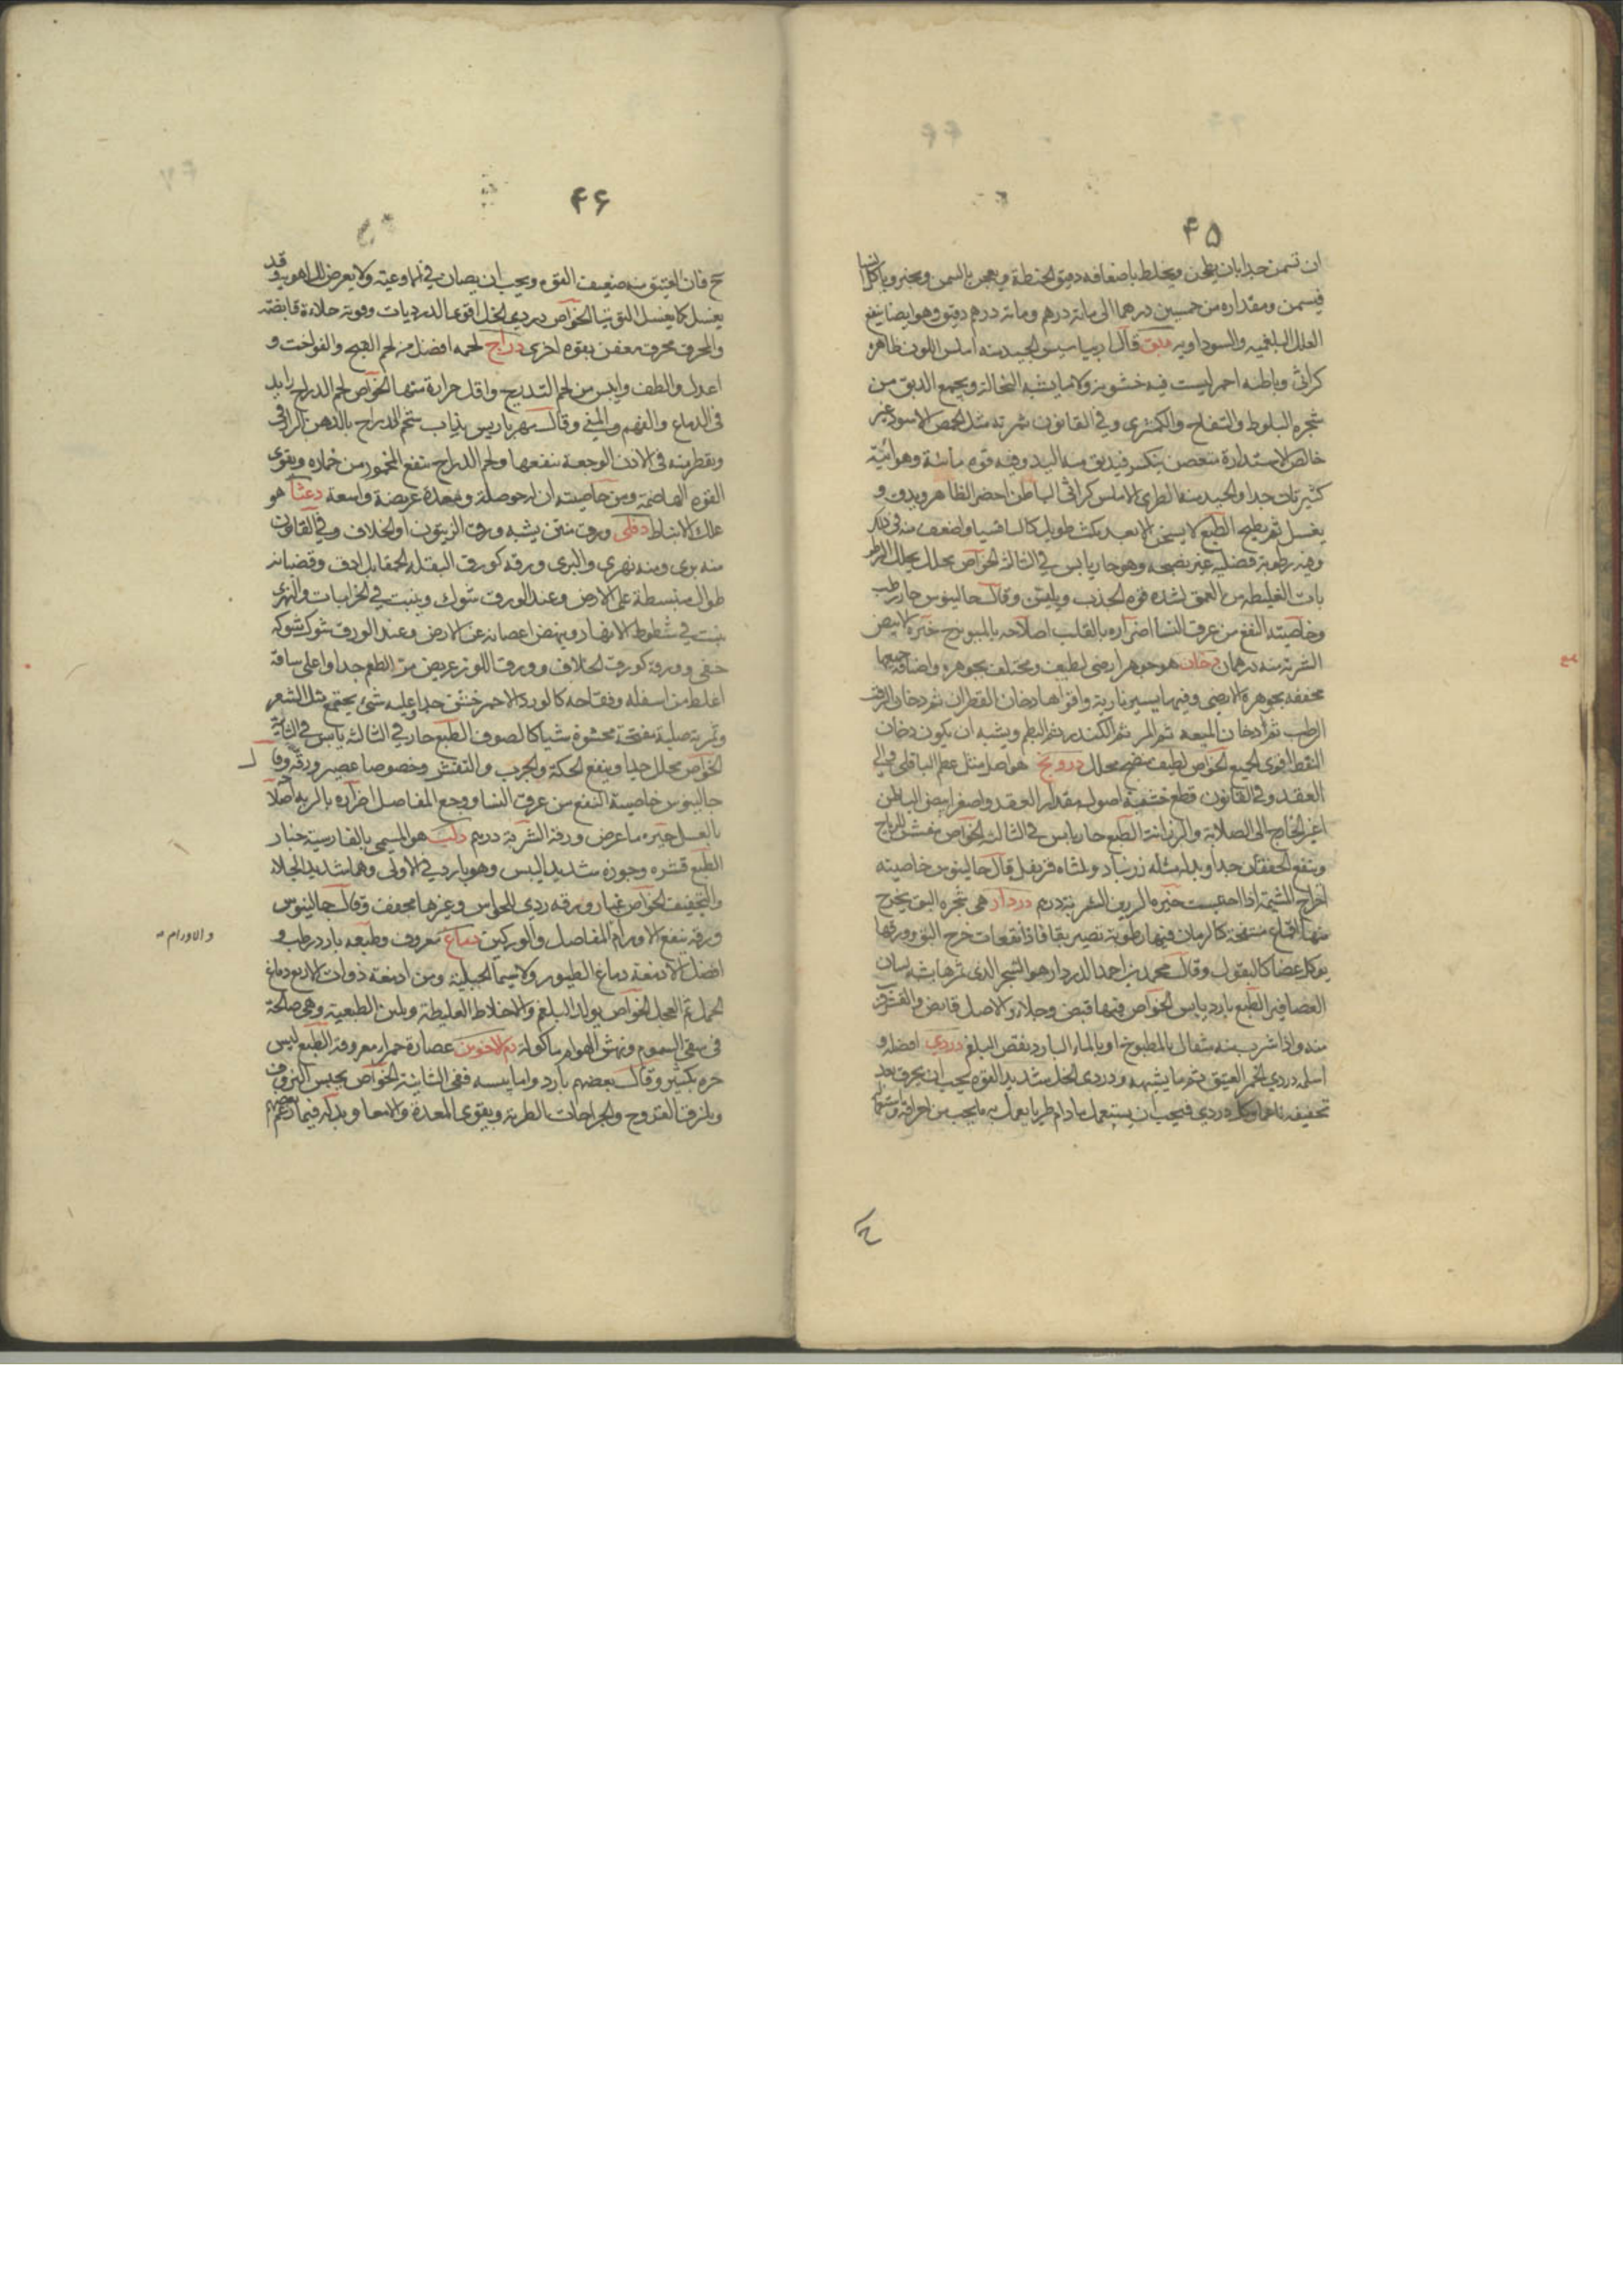 ۴۵
ان تسمن جدا بان يطحن ويخلط باضعافه دقيق الحنطة ويعجن بالسمن ويخبز وياكل
فيسمن ومقداره من خمسين درهما الى مائة درهم ومائة درهم دقيق وهو ايضا ينفع
العلل البلغمية والسوداوية دبق قال الجيد منه املس اللون ظاهره
كراثى وباطنه احمر ليست فيه خشونة ولا ما يشبه النخالة ويجمع الدبق من
شجرة البلوط والتفاح والكمثرى وفى القانون ثمرته مثل الحمص الاسود غير
خالص الاستدارة متغصن ينكسر فيدبق منه اليد وفيه قوة مائية وهوائية
كثيرتان جدا والجيد منه الطرى الاملس كراثى الباطن اخضر الظاهر ويدق و
يغسل ثم يطبخ الطبع لا يسخن الا بعد مكث طويل كالثافسيا واضعف منه فى ذلك
وفيه رطوبة فضلية غير نضيجة وهو حار يابس فى الثالثة الخواص محلل يحلل الرطو
بات الغليظة من العمق لشدة قوة الجذب ويلين وقال جالينوس حار رطب
وخاصيته النفع من عرق النسا اضراره بالقلب اصلاحه خيره الابيض
الشربة منه درهمان دخان هو جوهر ارضى لطيف ومختلف بجوهره واصنافه جميعها
مجففة بجوهره الارضى وفيها يسير نارية واقواها دخان القطران ثم دخان الزفت
الرطب ثم دخان الميعة ثم المر ثم الكندر ثم البطم ويشبه ان يكون دخان
النفط اقوى الجميع الخواص لطيف منضج محلل درونج هو اصل مثل عظم الباقلى والى
العقد وفى القانون قطع خشبية اصول مقدار العقد واصغر ابيض الباطن
اغبر الخارج الى الصلابة والرزانة الطبع حار يابس فى الثالثة الخواص مفشش للرياح
وينفع الخفقان جدا وبدله مثله زرنباد وثلثاه قرنفل قال جالينوس خاصيته
اخراج المشيمة اذا احتبست خيره الشربة درهم دردار هى شجرة البق يخرج
منها اقماع منتفخة كالرمان فيها رطوبة تصير بقا فاذا تفقات خرج البق وورقها
يوكل غضا كالبقول وقال محمد بن احمد الدردار هو الشجر الذى ثمرها يشبه لسان
العصافير الطبع بارد يابس الخواص فيها قبض وجلاء والاصل قابض والقشر
منه واذا شرب منه مثقال بالمطبوخ او بالماء البارد نفض البلغم دردى افضله و
اسلمه دردى الخمر العتيق ثم ما يشبهه ودردى الخل شديد القوة يجب ان يحرق بعد
تجفيفه ناعما وكل دردى فيجب ان يستعمل ما دام طريا يعمل به ما يجب من احراقه
۴۶
فان العتيق منه ضعيف القوة ويجب ان يصان فى اوعية ولا يعرض للهواء وقد
يغسل كما يغسل التوتيا الخواص دردى الخل اقوى الدرديات وقوته جلاءة قابضة
والمحرق محرق معفن بقوة اخرى دراج لحمه افضل من لحم القبج والفواخت و
اعدل والطف وايبس من لحم التدرج واقل حرارة منها الخواص لحم الدراج زايد
فى الدماغ والفهم والمنى وقال مهرباريس يذاب شحم الدراج بالدهن الرازقى
ويقطر منه فى الاذن الوجعة ينفعها ولحم الدراج ينفع المخمور من خماره ويقوى
القوة الهاضمة ومن خاصيته ان له حوصلة ومعدة عريضة واسعة دعثا هو
علك الانباط دفلى ورق منتن يشبه ورق الزيتون او الخلاف وفى القانون
منه برى ومنه نهرى والبرى ورقه كورق البقلة الحمقا بل ادق وقضبانه
طوال منبسطة على الارض وعند الورق شوك وينبت فى الخرابات والنهرى
ينبت فى شطوط الانهار وينهض اغصانه عن الارض وعند الورق شوك شوكه
خفى وورقه كورق الخلاف وورق اللوز عريض مر الطعم جدا واعلى ساقه
اغلظ من اسفله وفقاحه كالورد الاحمر خشن جدا وعليه شئ يجتمع مثل الشعر
وثمرته صلبة مفتحة محشوة شيا كالصوف الطبع حار فى الثالثة يابس فى الثانية
الخواص يحلل جدا وينفع الحكة والجرب والتقشر وخصوصا عصير ورقه وقال
جالينوس خاصيته النفع من عرق النسا ووجع المفاصل اضراره بالرية اصلاحه
بالعسل خيره ما عرض ورقه الشربة درهم دلب هو المسمى بالفارسية خنار
الطبع قشره وجوزه شديد اليبس وهو بارد فى الاولى وهما شديد الجلاء
والتجفيف الخواص غبار ورقه ردى للحواس وغيرها مجفف وقال جالينوس
ورقه ينفع الاورام المفاصل والوركين دماغ معروف وطبعه بارد رطب و
والاورام
افضل الادمغة دماغ الطيور ولا سيما الجبلية ومن ادمغة ذوات الاربع دماغ
الحمل ثم العجل الخواص يولد البلغم والاخلاط الغليظة ويلين الطبعية وهى صالحة
فى سقى السموم ونهش الهوام ماكولة دم الاخوين عصارة حمراء معروفة الطبع ليس
حره بكثير وقال بعضهم بارد واما يبسه ففى الثانية الخواص يحبس النزف
ويلزق القروح والجراحات الطرية ويقوى المعدة والامعا وبدله فيما زعم بعضهم